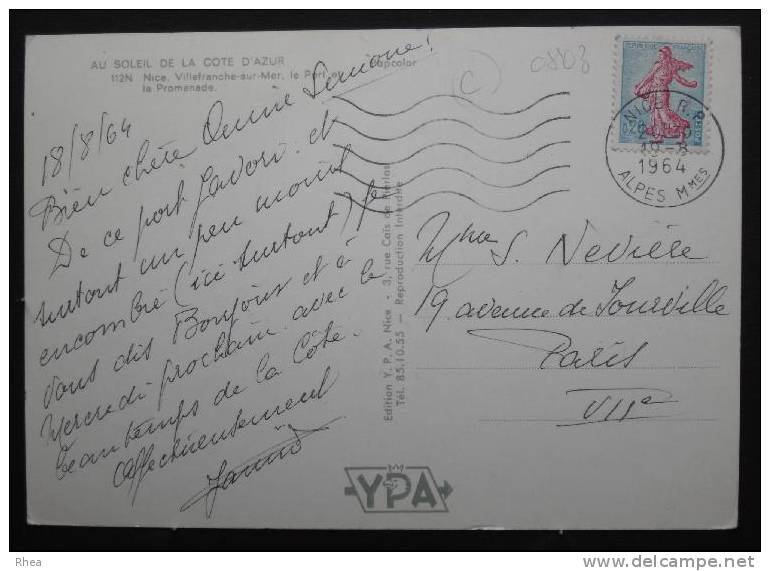 AU SOLEIL DE LA COTE D'AZUR
112N Nice. Villefranche-sur-Mer. le Port et
la Promenade.
18/8/64
Bien chère Simone!
De ce port favori et
surtout un peu moins
encombré (ici surtout) je
vous dis Bonjour et à
Mercredi prochain avec le
beau temps de la Côte.
Affectueusement
Edition Y. P. A. Nice - 3, rue Cais de Pierlas
Tél. 85.10.55 - Reproduction Interdite
YPA
(C)
0803
REPUBLIQUE FRANÇAISE
0,20
NICE R.P.
1964
ALPES MMES
Mme S. Nevière
19 avenue de Tourville
Paris
VIIe
Rhea
http://www.delcampe.net